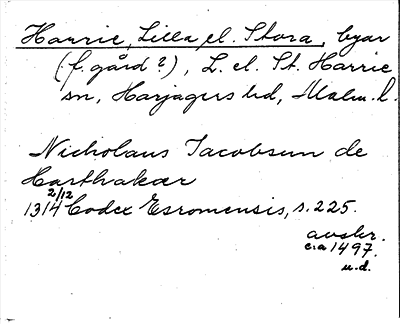 Harrie, Lilla el. Stora, byar
(f. gård?), L. el. St. Harrie
sn, Harjagers hd, Malm. l.
Nicholaus Jacobsun de
Harthakær
2/12
1314 Codex Esromensis, s. 225.
avskr.
c:a 1497.
u.d.